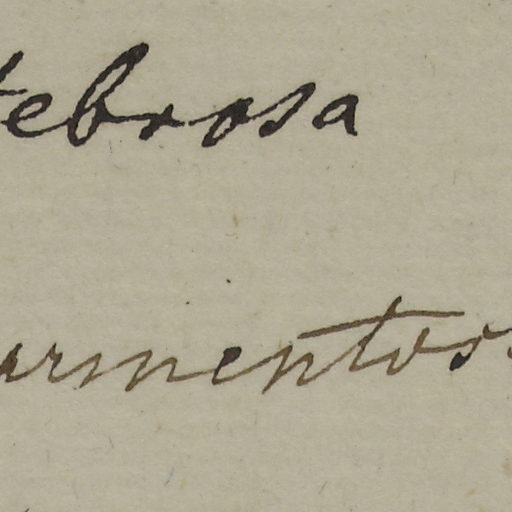 tebrosa
armentos